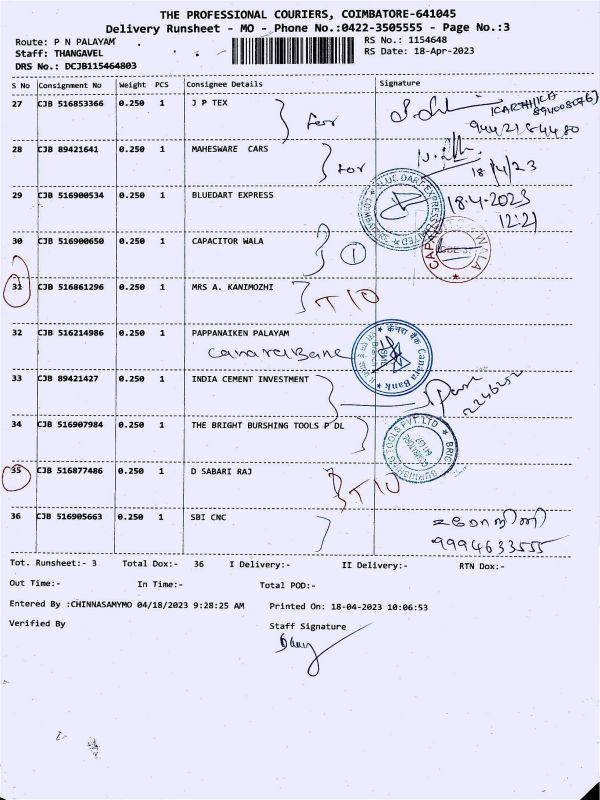 THE PROFESSIONAL COURIERS, COIMBATORE-641045
Delivery Runsheet - MO - Phone No.:0422-3505555 - Page No.:3
Route: P N PALAYAM
RS No.: 1154648
Staff: THANGAVEL
RS Date: 18-Apr-2023
DRS No.: DCJB115464803
S No Consignment No Weight PCS Consignee Details Signature
27 CJB 516853366 0.250 1 J P TEX
For
KARTHIKA
9442184480
28 CJB 89421641 0.250 1 MAHESWARE CARS
For
18/4/23
29 CJB 516900534 0.250 1 BLUEDART EXPRESS
BLUE DART EXPRESS LIMITED
COIMBATORE
18-4-2023
12:21
30 CJB 516900650 0.250 1 CAPACITOR WALA
1
CAPACITOR WALA
31 CJB 516861296 0.250 1 MRS A. KANIMOZHI
TIO
32 CJB 516214986 0.250 1 PAPPANAIKEN PALAYAM
Canara Bank
केनरा बैंक Canara Bank
33 CJB 89421427 0.250 1 INDIA CEMENT INVESTMENT
34 CJB 516907984 0.250 1 THE BRIGHT BURSHING TOOLS P DL
TOOLS PVT. LTD
35 CJB 516877486 0.250 1 D SABARI RAJ
TIO
36 CJB 516905663 0.250 1 SBI CNC
9994633555
Tot. Runsheet:- 3 Total Dox:- 36 I Delivery:- II Delivery:- RTN Dox:-
Out Time:- In Time:- Total POD:-
Entered By :CHINNASAMYMO 04/18/2023 9:28:25 AM Printed On: 18-04-2023 10:06:53
Verified By Staff Signature